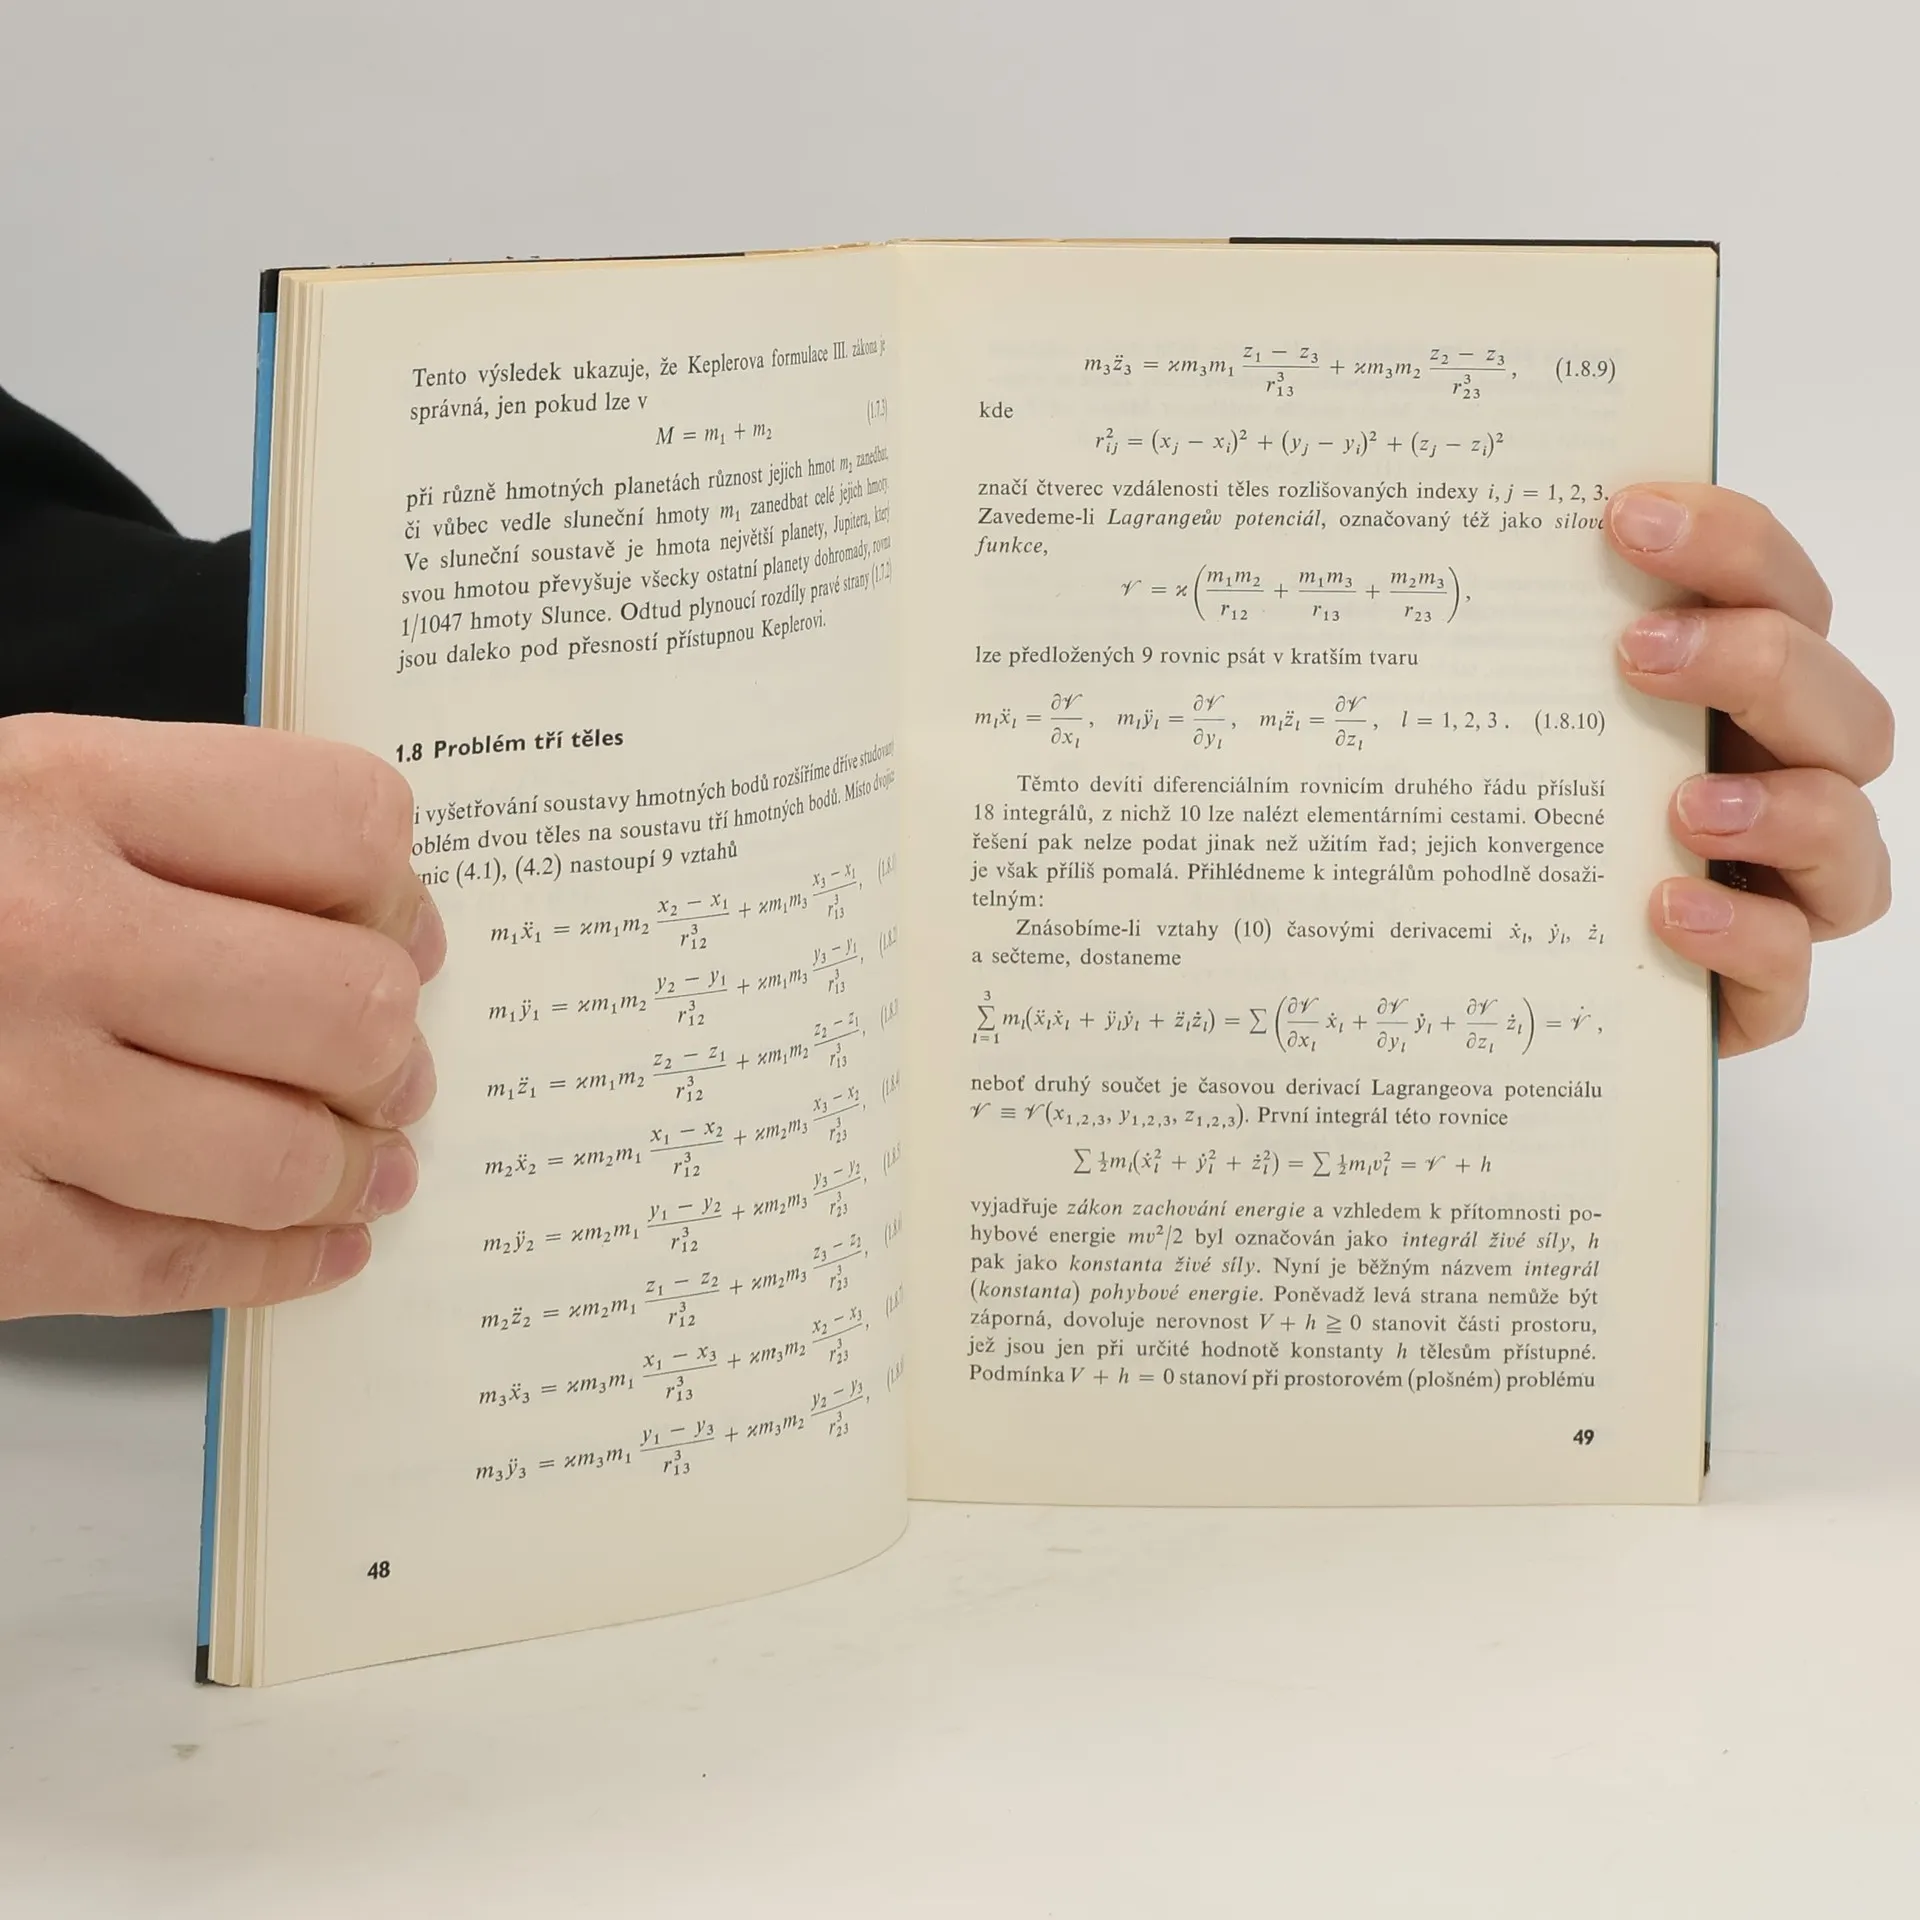 Tento výsledek ukazuje, že Keplerova formulace III. zákona je
správná, jen pokud lze v
M = m₁ + m₂ (1.7.3)
při různě hmotných planetách různost jejich hmot m₂ zanedbat,
či vůbec vedle sluneční hmoty m₁ zanedbat celé jejich hmoty.
Ve sluneční soustavě je hmota největší planety, Jupitera, který
svou hmotou převyšuje všecky ostatní planety dohromady, rovna
1/1047 hmoty Slunce. Odtud plynoucí rozdíly pravé strany (1.7.2)
jsou daleko pod přesností přístupnou Keplerovi.
1.8 Problém tří těles
i vyšetřování soustavy hmotných bodů rozšíříme dříve studovaný
oblém dvou těles na soustavu tří hmotných bodů. Místo dvojice
nic (4.1), (4.2) nastoupí 9 vztahů
m₁ẍ₁ = ϰm₁m₂ (x₂ − x₁)/r³₁₂ + ϰm₁m₃ (x₃ − x₁)/r³₁₃, (1.8.1)
m₁ÿ₁ = ϰm₁m₂ (y₂ − y₁)/r³₁₂ + ϰm₁m₃ (y₃ − y₁)/r³₁₃, (1.8.2)
m₁z̈₁ = ϰm₁m₂ (z₂ − z₁)/r³₁₂ + ϰm₁m₂ (z₂ − z₁)/r³₁₃, (1.8.3)
m₂ẍ₂ = ϰm₂m₁ (x₁ − x₂)/r³₁₂ + ϰm₂m₃ (x₃ − x₂)/r³₂₃, (1.8.4)
m₂ÿ₂ = ϰm₂m₁ (y₁ − y₂)/r³₁₂ + ϰm₂m₃ (y₃ − y₂)/r³₂₃, (1.8.5)
m₂z̈₂ = ϰm₂m₁ (z₁ − z₂)/r³₁₂ + ϰm₂m₃ (z₃ − z₂)/r³₂₃, (1.8.6)
m₃ẍ₃ = ϰm₃m₁ (x₁ − x₃)/r³₁₃ + ϰm₃m₂ (x₂ − x₃)/r³₂₃, (1.8.7)
m₃ÿ₃ = ϰm₃m₁ (y₁ − y₃)/r³₁₃ + ϰm₃m₂ (y₂ − y₃)/r³₂₃, (1.8.8)
48
m₃z̈₃ = ϰm₃m₁ (z₁ − z₃)/r³₁₃ + ϰm₃m₂ (z₂ − z₃)/r³₂₃, (1.8.9)
kde
r²ᵢⱼ = (xⱼ − xᵢ)² + (yⱼ − yᵢ)² + (zⱼ − zᵢ)²
značí čtverec vzdálenosti těles rozlišovaných indexy i, j = 1, 2, 3.
Zavedeme-li Lagrangeův potenciál, označovaný též jako silová
funkce,
𝒱 = ϰ (m₁m₂/r₁₂ + m₁m₃/r₁₃ + m₂m₃/r₂₃),
lze předložených 9 rovnic psát v kratším tvaru
mₗẍₗ = ∂𝒱/∂xₗ, mₗÿₗ = ∂𝒱/∂yₗ, mₗz̈ₗ = ∂𝒱/∂zₗ, l = 1, 2, 3. (1.8.10)
Těmto devíti diferenciálním rovnicím druhého řádu přísluší
18 integrálů, z nichž 10 lze nalézt elementárními cestami. Obecné
řešení pak nelze podat jinak než užitím řad; jejich konvergence
je však příliš pomalá. Přihlédneme k integrálům pohodlně dosaži-
telným:
Znásobíme-li vztahy (10) časovými derivacemi ẋₗ, ẏₗ, żₗ
a sečteme, dostaneme
∑³ₗ₌₁ mₗ(ẍₗẋₗ + ÿₗẏₗ + z̈ₗżₗ) = ∑ (∂𝒱/∂xₗ ẋₗ + ∂𝒱/∂yₗ ẏₗ + ∂𝒱/∂zₗ żₗ) = 𝒱̇,
neboť druhý součet je časovou derivací Lagrangeova potenciálu
𝒱 ≡ 𝒱(x₁,₂,₃, y₁,₂,₃, z₁,₂,₃). První integrál této rovnice
∑ ½mₗ(ẋ²ₗ + ẏ²ₗ + ż²ₗ) = ∑ ½mₗv²ₗ = 𝒱 + h
vyjadřuje zákon zachování energie a vzhledem k přítomnosti po-
hybové energie mv²/2 byl označován jako integrál živé síly, h
pak jako konstanta živé síly. Nyní je běžným názvem integrál
(konstanta) pohybové energie. Poněvadž levá strana nemůže být
záporná, dovoluje nerovnost V + h ≧ 0 stanovit části prostoru,
jež jsou jen při určité hodnotě konstanty h tělesům přístupné.
Podmínka V + h = 0 stanoví při prostorovém (plošném) problému
49